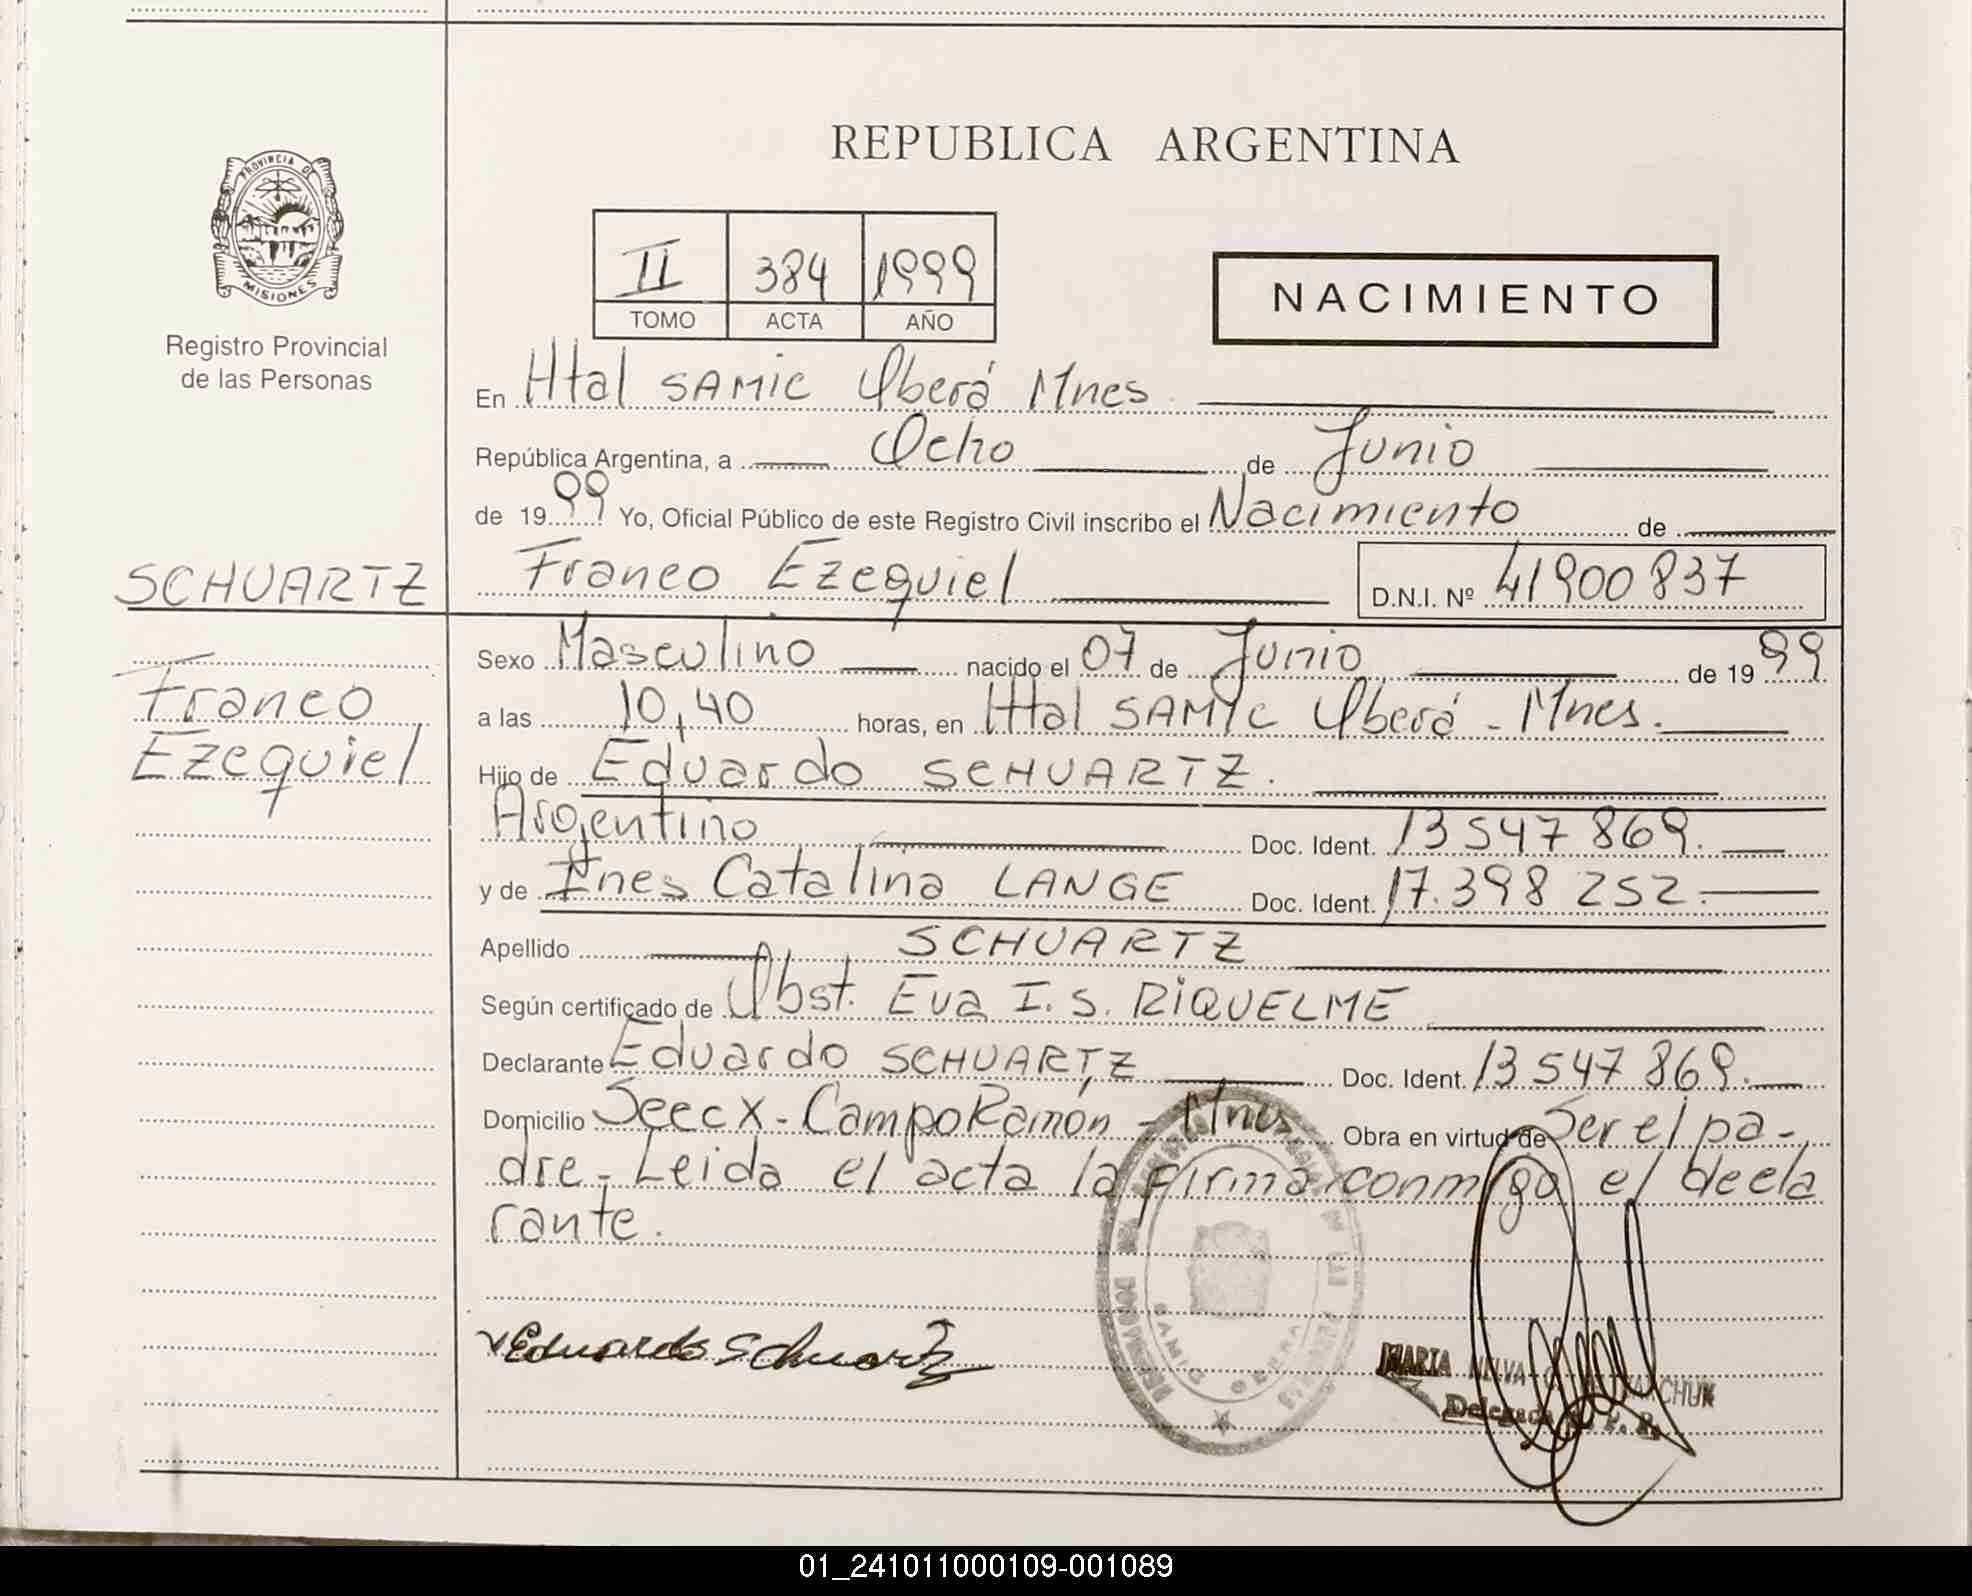 REPUBLICA ARGENTINA
PROVINCIA DE
MISIONES
Registro Provincial
de las Personas
II 384 1999
TOMO ACTA AÑO
NACIMIENTO
En Htal SAMIC Oberá Mnes
República Argentina, a Ocho de Junio
de 1999 Yo, Oficial Público de este Registro Civil inscribo el Nacimiento de
SCHUARTZ
Franco Ezequiel D.N.I. Nº 41900837
Franco
Ezequiel
Sexo Masculino nacido el 07 de Junio de 1999
a las 10,40 horas, en Htal SAMIC Oberá - Mnes.
Hijo de Eduardo SCHUARTZ.
Argentino Doc. Ident. 13547869.
y de Ines Catalina LANGE Doc. Ident. 17.398252.
Apellido SCHUARTZ
Según certificado de Obst. Eva I. S. RIQUELME
Declarante Eduardo SCHUARTZ Doc. Ident. 13547869.
Domicilio Secc X - Campo Ramón - Mnes Obra en virtud de Ser el pa-
dre - Leida el acta la firma conmigo el decla
rante.
Eduardo Schuartz
MARIA
Delegada R. P. P.
01_241011000109-001089